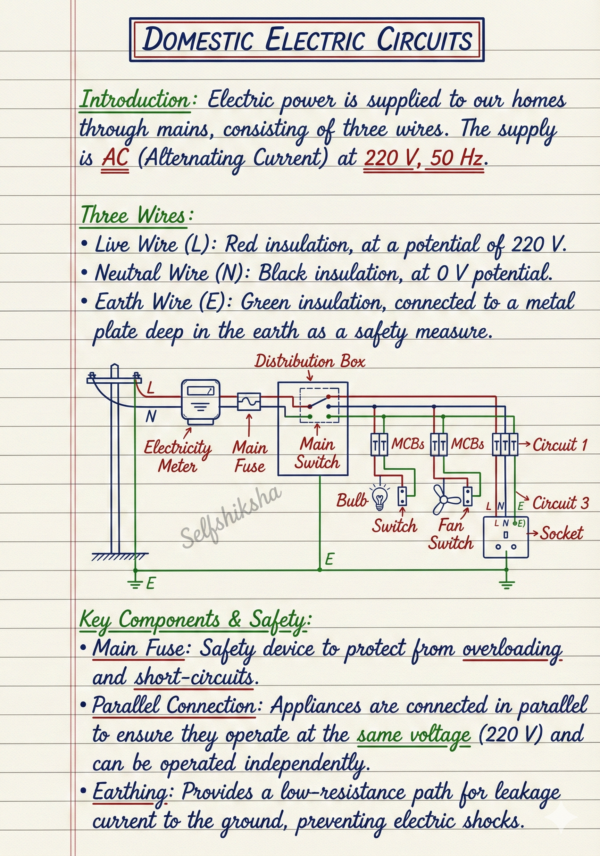 DOMESTIC ELECTRIC CIRCUITS
Introduction: Electric power is supplied to our homes
through mains, consisting of three wires. The supply
is AC (Alternating Current) at 220 V, 50 Hz.
Three Wires:
• Live Wire (L): Red insulation, at a potential of 220 V.
• Neutral Wire (N): Black insulation, at 0 V potential.
• Earth Wire (E): Green insulation, connected to a metal
plate deep in the earth as a safety measure.
Distribution Box
L
N
Electricity
Meter
Main
Fuse
Main
Switch
MCBs
MCBs
Circuit 1
Bulb
Switch
Fan
Switch
L N E
Circuit 3
L N E)
Socket
Selfshiksha
E
E
Key Components & Safety:
• Main Fuse: Safety device to protect from overloading
and short-circuits.
• Parallel Connection: Appliances are connected in parallel
to ensure they operate at the same voltage (220 V) and
can be operated independently.
• Earthing: Provides a low-resistance path for leakage
current to the ground, preventing electric shocks.